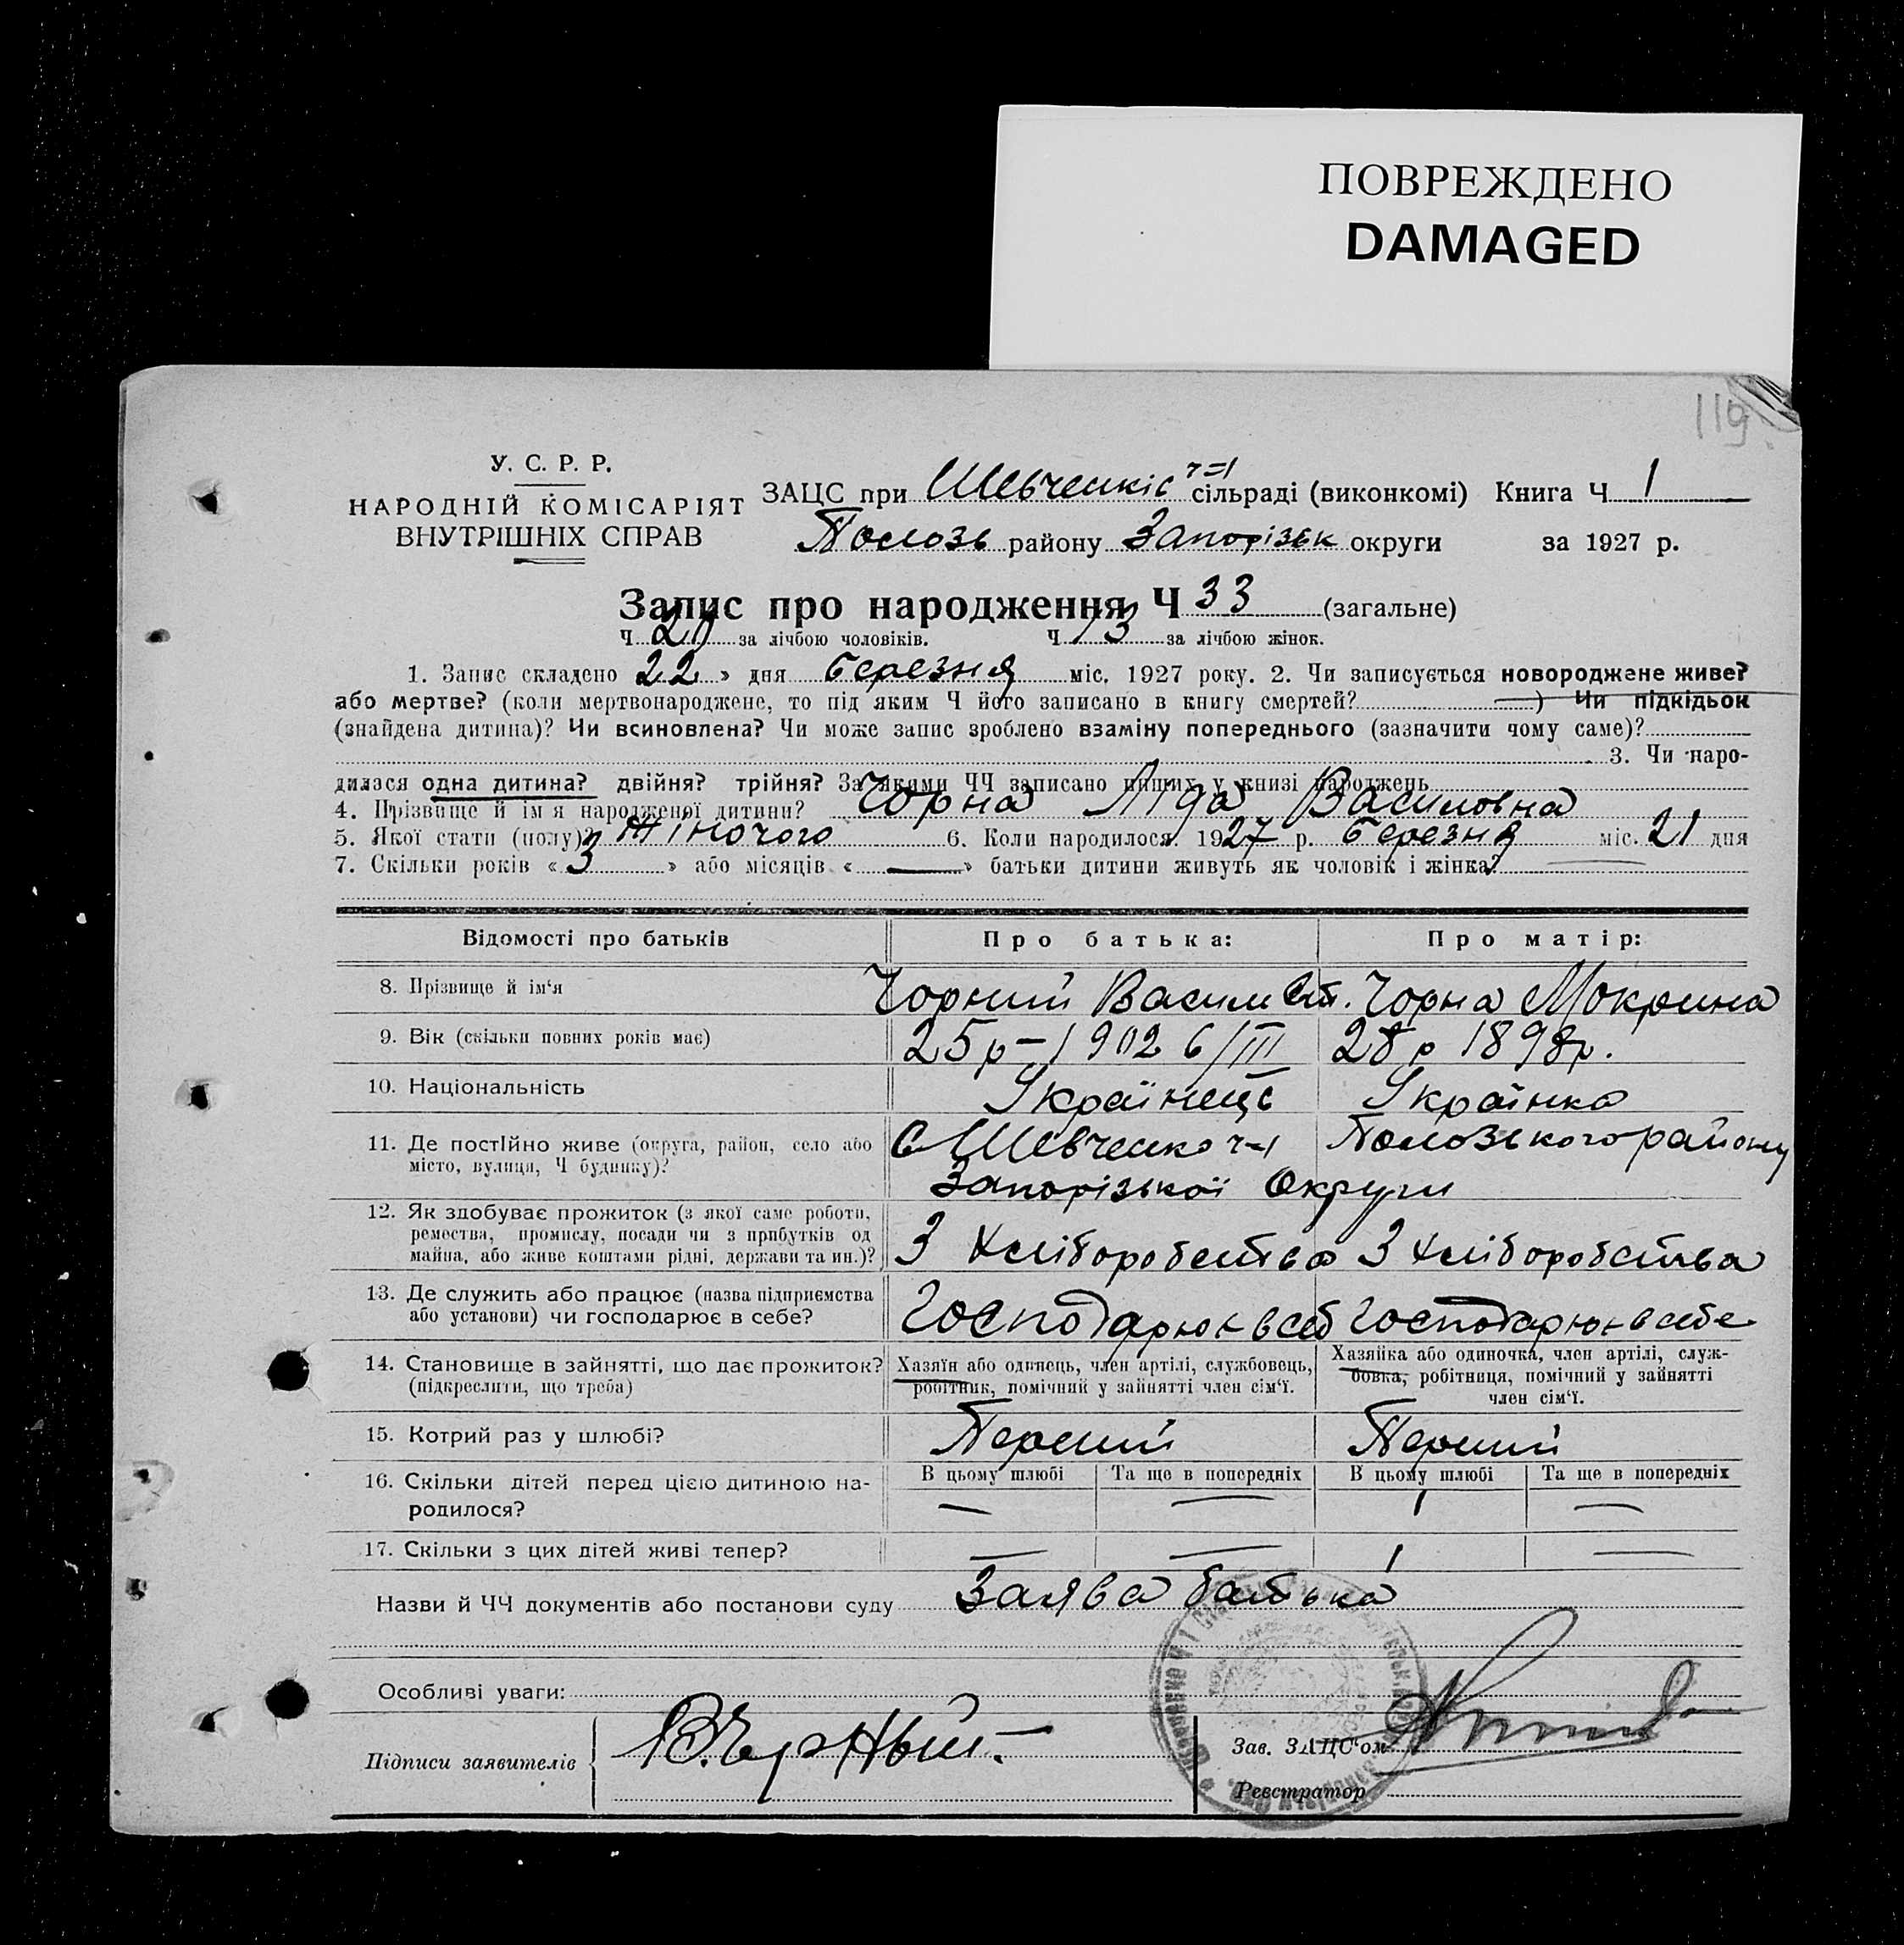 ПОВРЕЖДЕНО
DAMAGED
119
У. С. Р. Р.
НАРОДНІЙ КОМІСАРІЯТ
ВНУТРІШНІХ СПРАВ
ЗАЦС при Шевченкіс ч=1 сільраді (виконкомі) Книга Ч 1
Полозь району Запорізьк округи за 1927 р.
Запис про народження Ч 33 (загальне)
Ч 20 за лічбою чоловіків. Ч 13 за лічбою жінок.
1. Запис складено 22 » дня березня міс. 1927 року. 2. Чи записується новороджене живе?
або мертве? (коли мертвонароджене, то під яким Ч його записано в книгу смертей? —) Чи підкідьок
(знайдена дитина)? Чи всиновлена? Чи може запис зроблено взаміну попереднього (зазначити чому саме)?
3. Чи наро-
дилася одна дитина? двійня? трійня? За якими ЧЧ записано инших у книзі народжень
4. Прізвище й ім'я народженої дитини? Чорна Ліда Василовна
5. Якої стати (полу)? жіночого 6. Коли народилося. 1927 р. березня міс. 21 дня
7. Скільки років « 3 » або місяців « — » батьки дитини живуть як чоловік і жінка? —
Відомості про батьків Про батька: Про матір:
8. Прізвище й ім‘я Чорний Васил Ст. Чорна Мокрина
9. Вік (скільки повних років має) 25р – 1902 6/III 28 р 1898р.
10. Національність Українець Українка
11. Де постійно живе (округа, район, село або
місто, вулиця, Ч будинку)?
С Шевченко ч-1 Полозького району
Запорізької Округи
12. Як здобуває прожиток (з якої саме роботи,
ремества, промислу, посади чи з прибутків од
майна, або живе коштами рідні, держави та ин.)?
З хліборобства З хліборобства
13. Де служить або працює (назва підприємства
або установи) чи господарює в себе?
Господарює в себ Господарює в себе
14. Становище в зайнятті, що дає прожиток?
(підкреслити, що треба)
Хазяїн або одинець, член артілі, службовець,
робітник, помічний у зайнятті член сім‘ї.
Хазяйка або одиночка, член артілі, служ-
бовка, робітниця, помічний у зайнятті
член сім‘ї.
15. Котрий раз у шлюбі? Перший Перший
16. Скільки дітей перед цією дитиною на-
родилося?
В цьому шлюбі Та ще в попередніх В цьому шлюбі Та ще в попередніх
— — 1 —
17. Скільки з цих дітей живі тепер? — — 1 —
Назви й ЧЧ документів або постанови суду Заява батька
Особливі уваги:
Підписи заявителів В. Черный.
Зав. ЗАЦС‘ом
Реєстратор